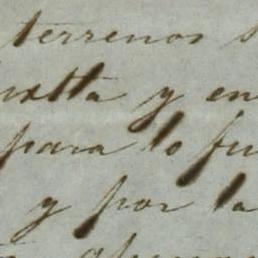 terrenos
y en
para lo fu
y por la